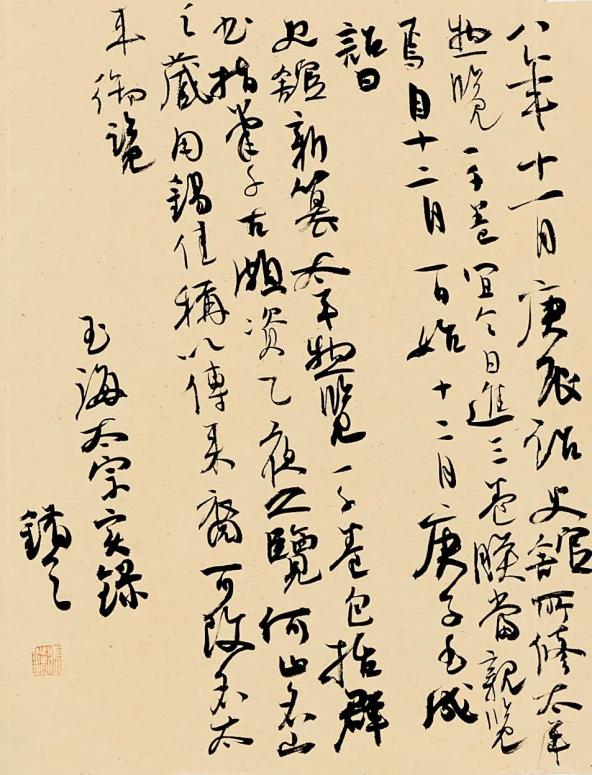 八年十一月庚辰詔史館所修太平
總覽一千卷宜令日進三卷朕當親覽
焉自十二月一日始十二月庚子書成
詔曰
史館新纂太平總覽一千卷包括群
書指掌千古頗資乙夜之覽何止名山
之藏用錫佳稱以傳來裔可改名太
平御覽
玉海太宗實錄